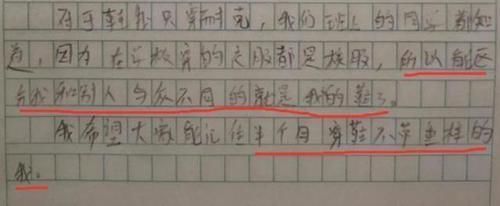 对于鞋我只穿耐克，我们班上的同学都知
道，因为在学校穿的衣服都是校服，所以能区
分我和别人与众不同的就是我的鞋子。
我希望大家能记住半个月穿鞋不带重样的
我。